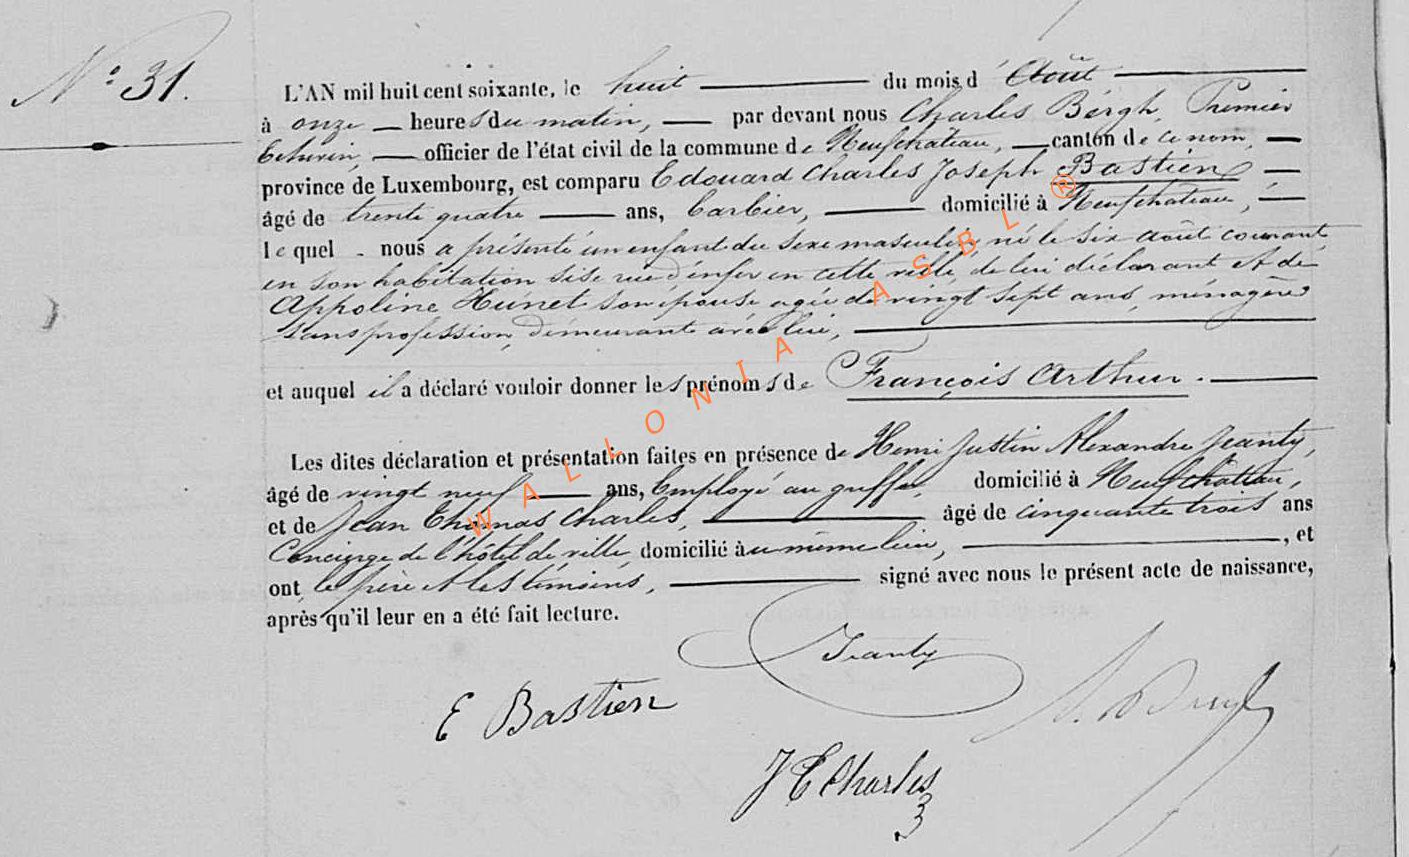 N° 31.
L'AN mil huit cent soixante, le huit du mois d'Août
à onze heures du matin, par devant nous Charles Bergh, Premier
Echevin, officier de l'état civil de la commune de Neufchateau, canton de ce nom,
province de Luxembourg, est comparu Edouard Charles Joseph Bastien
âgé de trente quatre ans, barbier, domicilié à Neufchateau,
lequel nous a présenté un enfant du sexe masculin, né le six août courant
en son habitation sise rue d'enfer en cette ville, de lui déclarant et de
Appoline Hunet son épouse agée de vingt sept ans, ménagère
sans profession, demeurant avec lui,
et auquel il a déclaré vouloir donner les prénoms de François Arthur.
Les dites déclaration et présentation faites en présence de Henri Justin Alexandre Jeanty,
âgé de vingt neuf ans, Employé au greffe, domicilié à Neufchâteau,
et de Jean Thomas Charles, âgé de cinquante trois ans
Concierge de l'hôtel de ville, domicilié au même lieu, , et
ont, le père et les témoins, signé avec nous le présent acte de naissance,
après qu'il leur en a été fait lecture.
Jeanty
E Bastien
J T Charles
WALLONIA ASBL ®